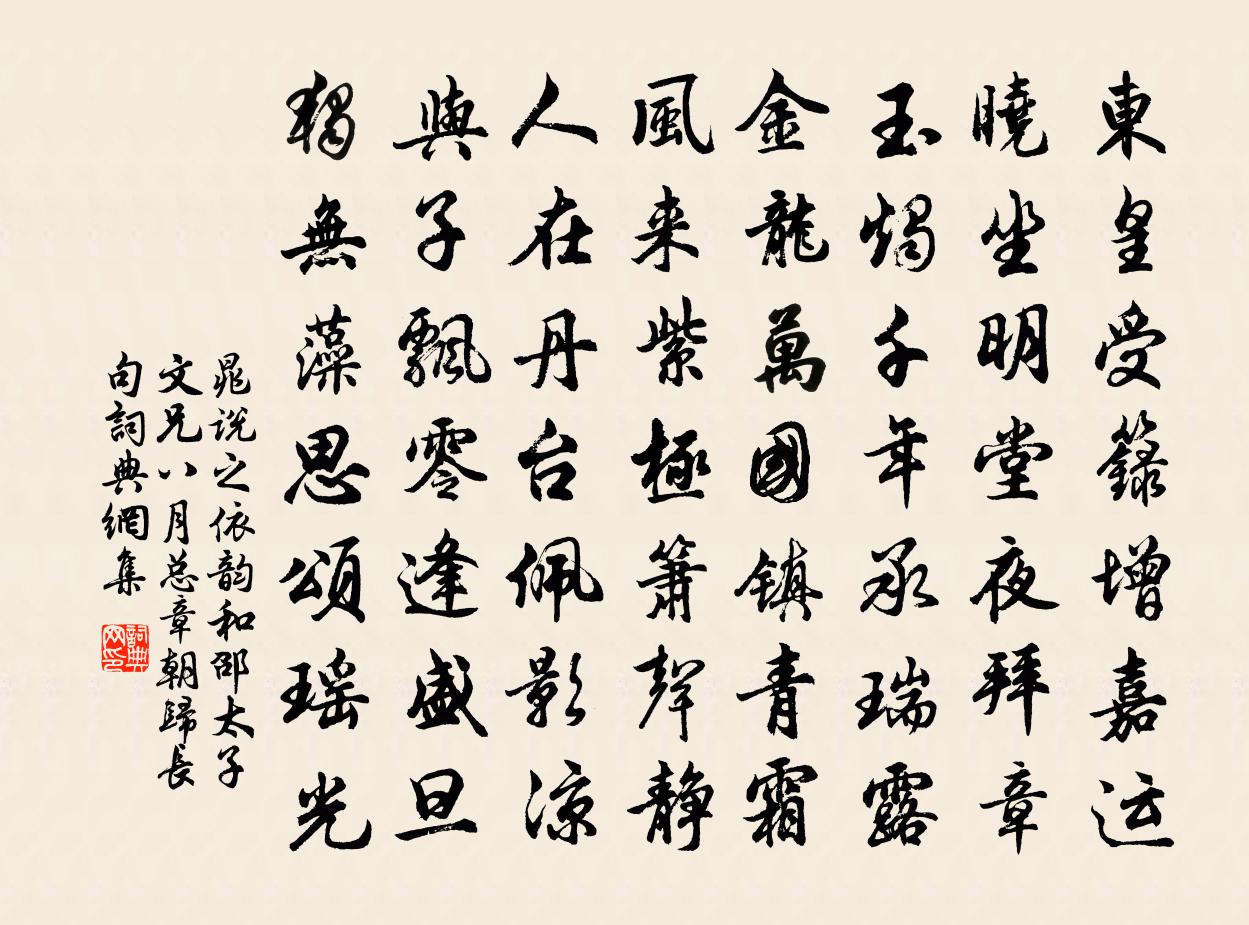 東皇受籙增嘉运
曉坐明堂夜拜章
玉燭千年承瑞露
金龍萬國镇青霜
風来紫極簫聲静
人在丹台佩影凉
與子飄零逢盛旦
獨無藻思頌瑶光
晁说之依韵和邵太子
文兄八月总章朝歸長
句詞典網集
詞典
网印